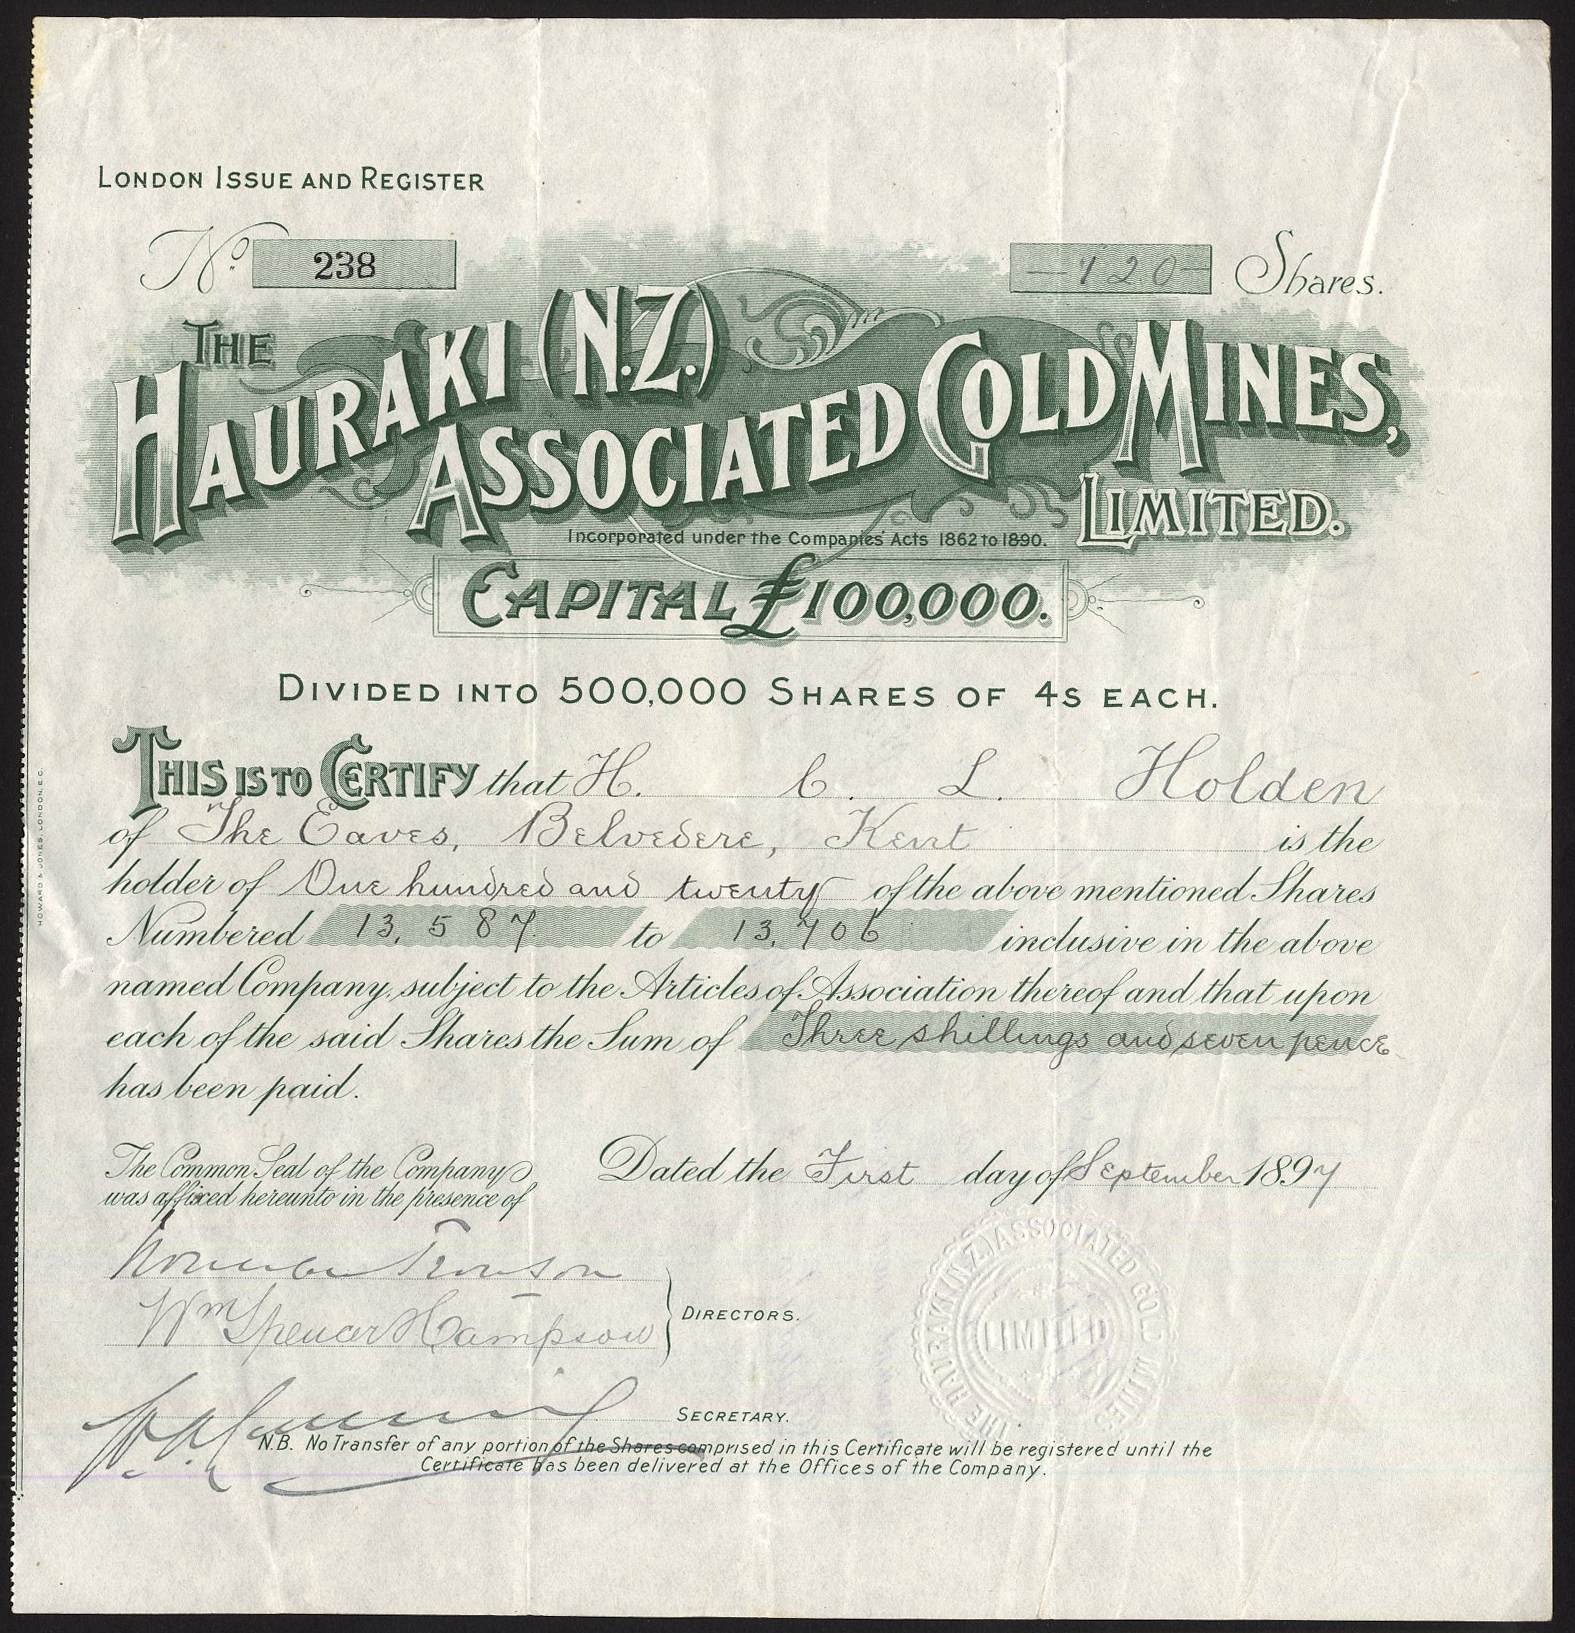 LONDON ISSUE AND REGISTER
No. 238
-120- Shares.
THE
HAURAKI (N.Z.)
ASSOCIATED GOLD MINES,
LIMITED.
Incorporated under the Companies' Acts 1862 to 1890.
CAPITAL £100,000.
DIVIDED INTO 500,000 SHARES OF 4S EACH.
THIS IS TO CERTIFY that H. C. L. Holden
of The Eaves, Belvedere, Kent is the
holder of One hundred and twenty of the above mentioned Shares
Numbered 13,587 to 13,706 inclusive in the above
named Company, subject to the Articles of Association thereof and that upon
each of the said Shares the Sum of Three shillings and seven pence
has been paid.
The Common Seal of the Company
was affixed hereunto in the presence of
Dated the First day of September 1897
Wm Spencer Hampson
DIRECTORS.
SECRETARY.
N.B. No Transfer of any portion of the Shares comprised in this Certificate will be registered until the
Certificate has been delivered at the Offices of the Company.
THE HAURAKI (N.Z.) ASSOCIATED GOLD MINES
LIMITED
HOWARD & JONES, LONDON. E.C.